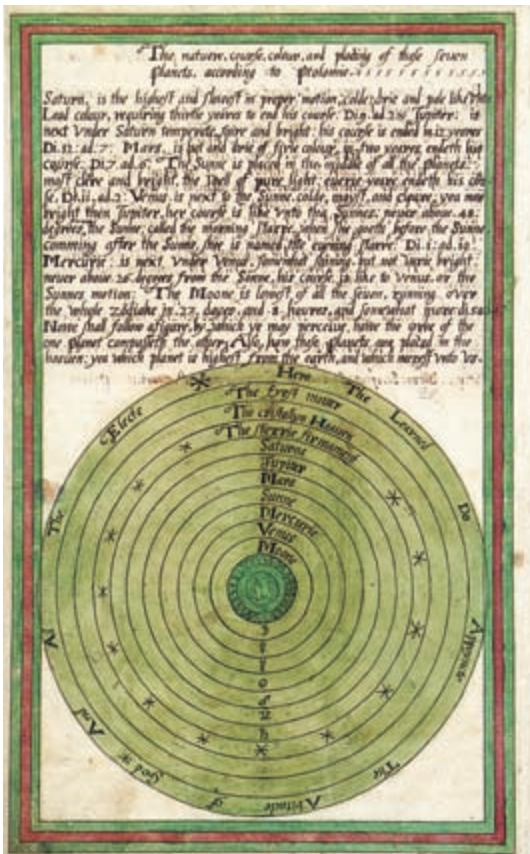 The nature, course, colour, and placing of these seven
planets, according to Ptolome.
Saturn, is the highest and slowest in proper motion, colde, drie and pale like unto
Lead colour, requiring thirtie yeares to end his course. Jupiter: is
next Under Saturn temperate, faire and bright: his course is ended in 12 yeares
Di. 12. ad. 7. Mars, is hot and drie of firie colour, in two yeares endeth his
course. Di. 7. ad. 6. The Sunne is placed in the middle of all the planets:
most clere and bright, the Well of pure light: everie yeare endeth his
Di. 11. ad. 2. Venus is next to the Sunne, colde, moyst, and cleare, you
bright then Jupiter, her course is like unto the Sunnes: never above .48.
degrees, the Sunne, called the morning starre, when she goeth before the Sunne,
comming after the Sunne, shee is named the evening starre.
Mercurie: is next Under Venus, somewhat shining, but not verie bright:
never above .26. degrees from the Sunne, his course, is like to Venus, or the
Sunnes motion: The Moone is lowest of all the seven, running over
the whole Zodiake in .27. dayes, and .8. houres, and somewhat more
Now shall follow a figure, by which ye may perceive, howe the sphere of the
one planet compasseth the other: Also, howe these planets, are placed in the
heaven: you which planet is highest from the earth, and which nerest unto
Here The Learned Do Appointe The Abitacle of God & And Al The Electe
The first mover
The cristalyn Heaven
The sterrie firmament
Saturne
Jupiter
Mars
Sunne
Mercurie
Venus
Moone